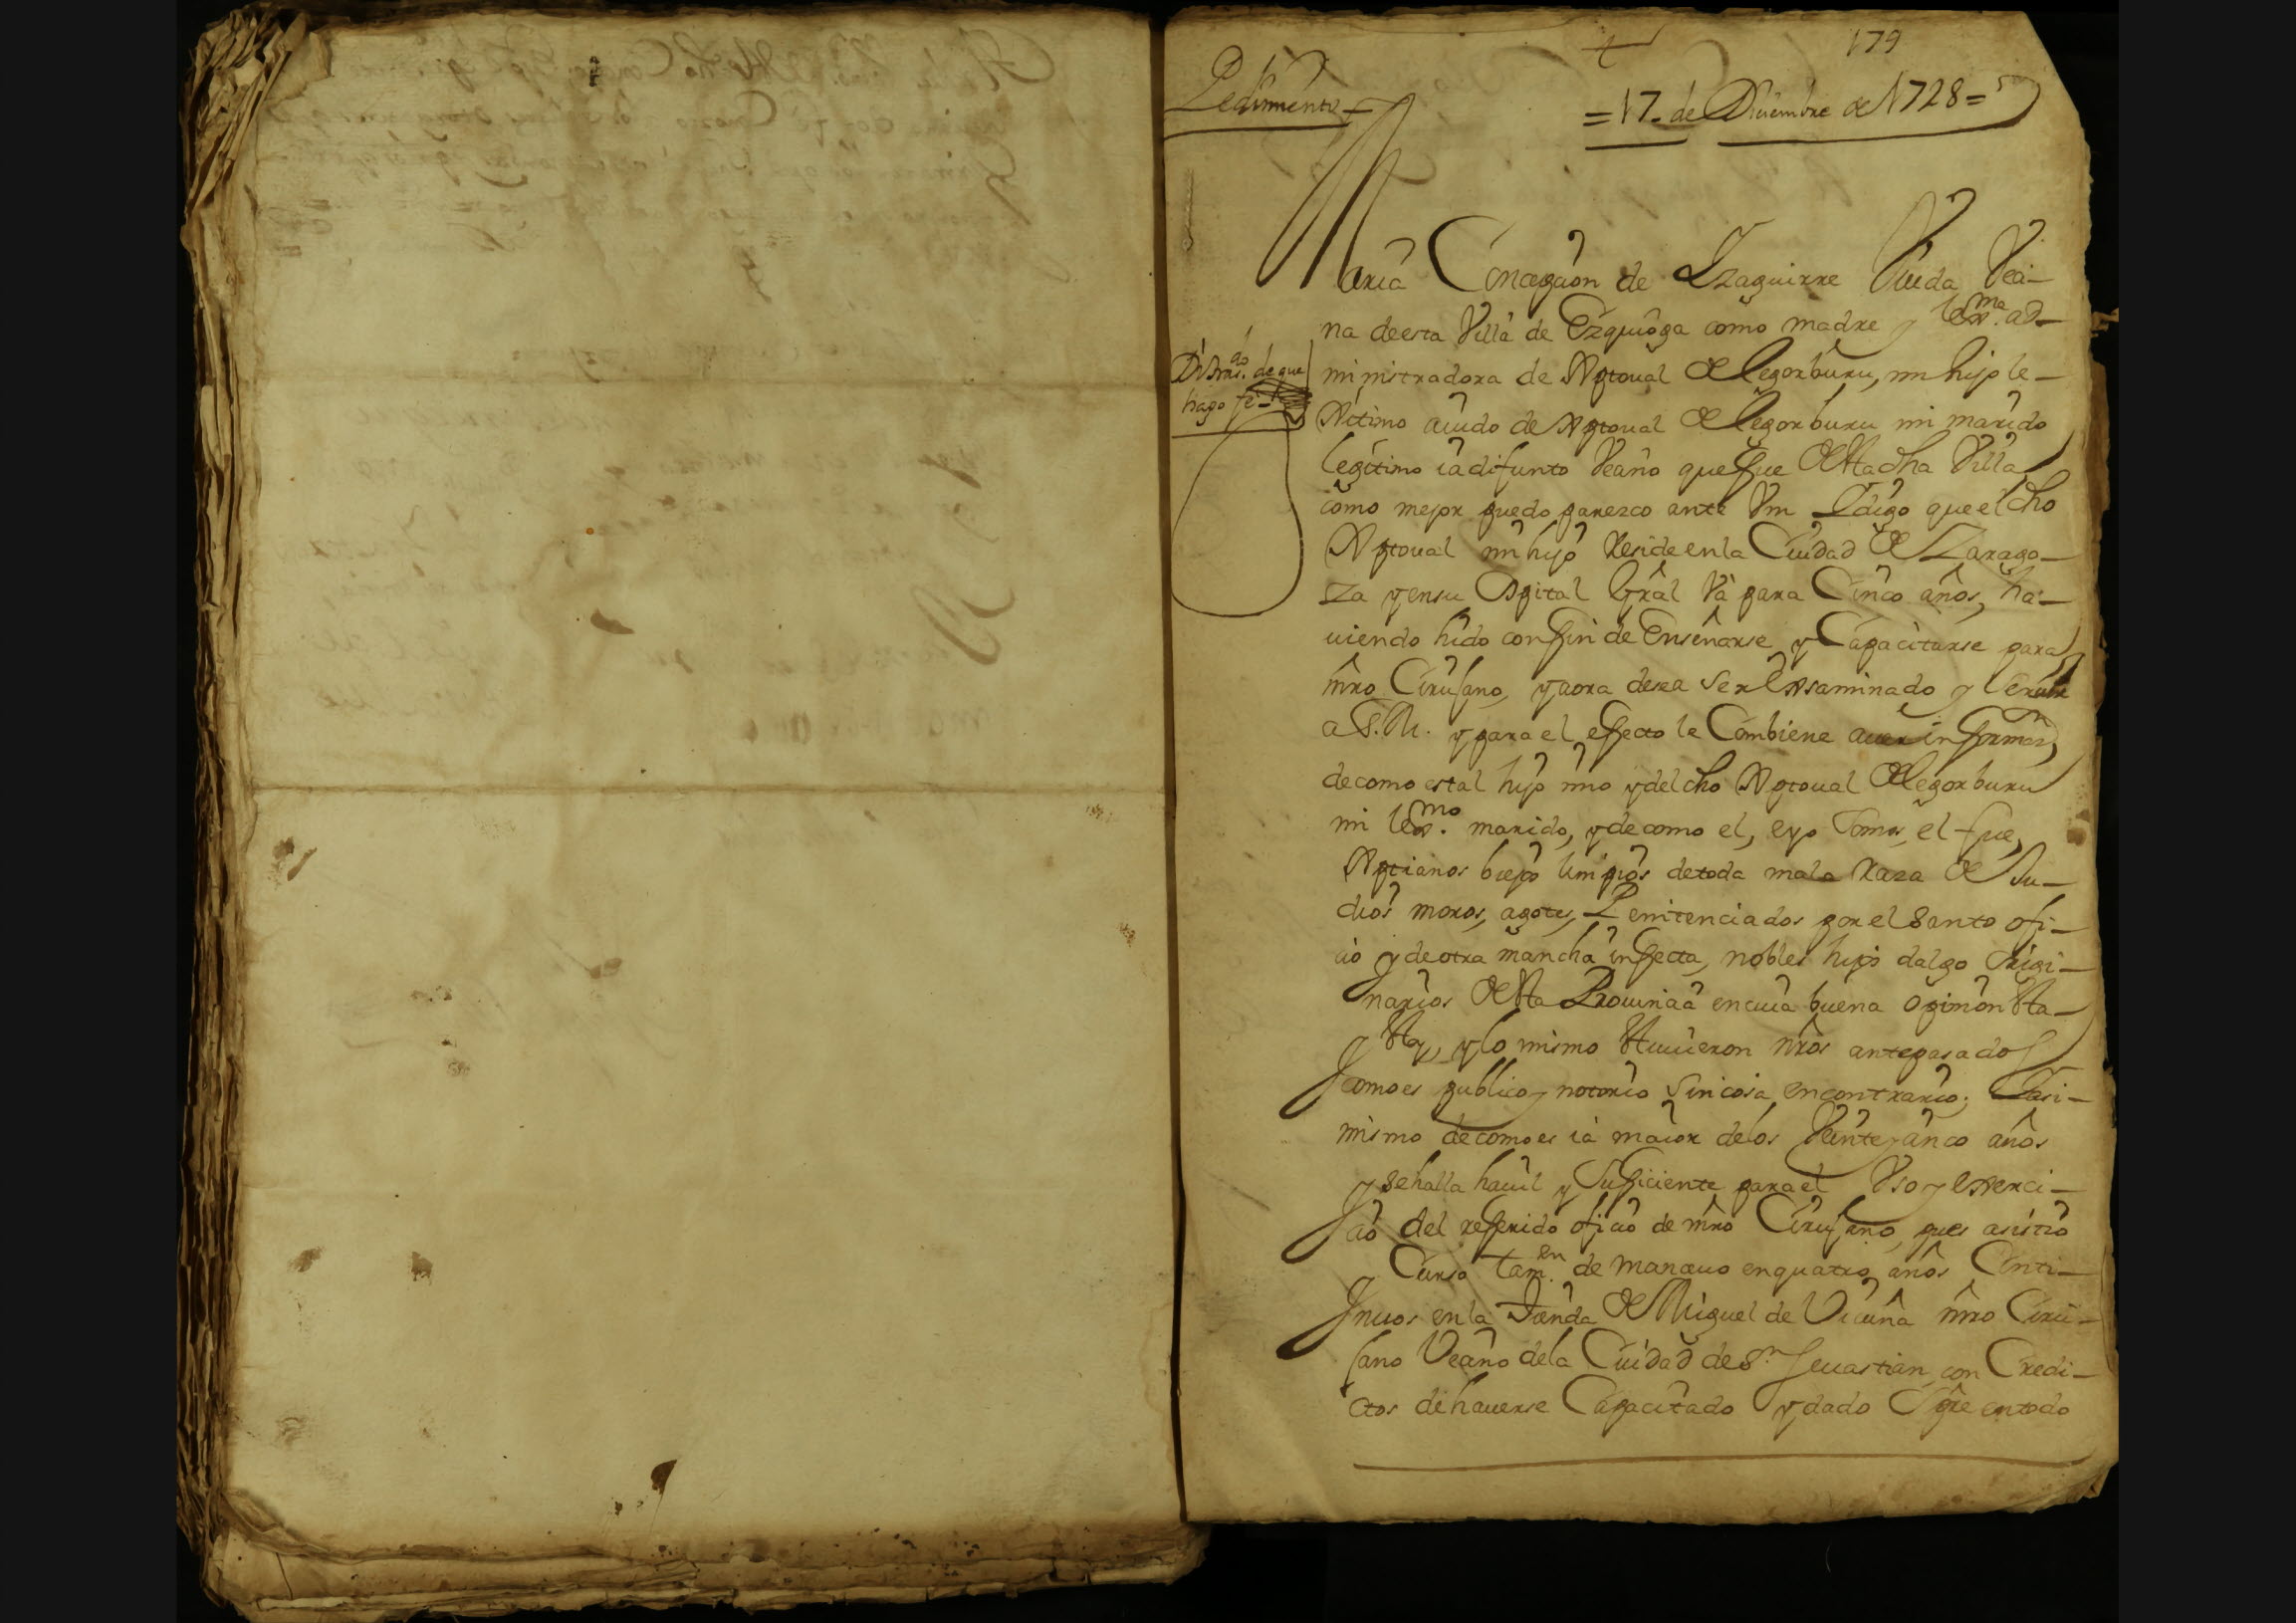 179
Pedimento
=17. de Diciembre de 1728=
Maria Concepcion de Yzaguirre Viuda Veci-
na deesta Villa de Ezquioga como madre y lexma. ad-
ministradora de Xptoual de legorburu, mi hijo le-
Xitimo auido de Xptoual de legorburu mi marido
legitimo ia difunto Vecino que fue desta dha Villa
como mejor puedo parezco ante Vm Y digo que el dho
Xptoual mi hijo Reside en la Ciudad de Zarago-
za y en su Ospital Gral Và para Cinco años, ha-
uiendo hido con fin de Enseñarse y Capacitarse para
mro Cirujano, y aora desea ser Exsaminado y Seruir
a S.M. y para el effecto le Combiene auer informon
de como es tal hijo mio y del dho Xptoual de legorburu
mi lexmo. marido, y de como el, e yo somos, el fue,
Xptianos biejos limpios de toda mala Raza de Ju-
dios moros, agotes, Penitenciados por el Santo ofi-
cio y de otra mancha infecta, nobles hijos dalgo Origi-
narios desta Prouincia en cuia buena opinion esta-
y estoy, y lo mismo estuuieron nros antepasados
como es publico y notorio sin cosa en contrario; Y asi-
mismo de como es ia maior de los Veinte y cinco años
y se halla hauil y Suficiente para el Vso y exerci-
cio del referido oficio de mro Cirujano, pues asistio
Curso tamen. de manceuo en quatro años Conti-
nuos en la Tienda de Miguel de Vicuña mro Ciru-
jano Vecino de la Ciudad de Sn Seuastian, con Credi-
ctos de hauerse Capacitado y dado Spre en todo
Di trasdo. de que
hago fe